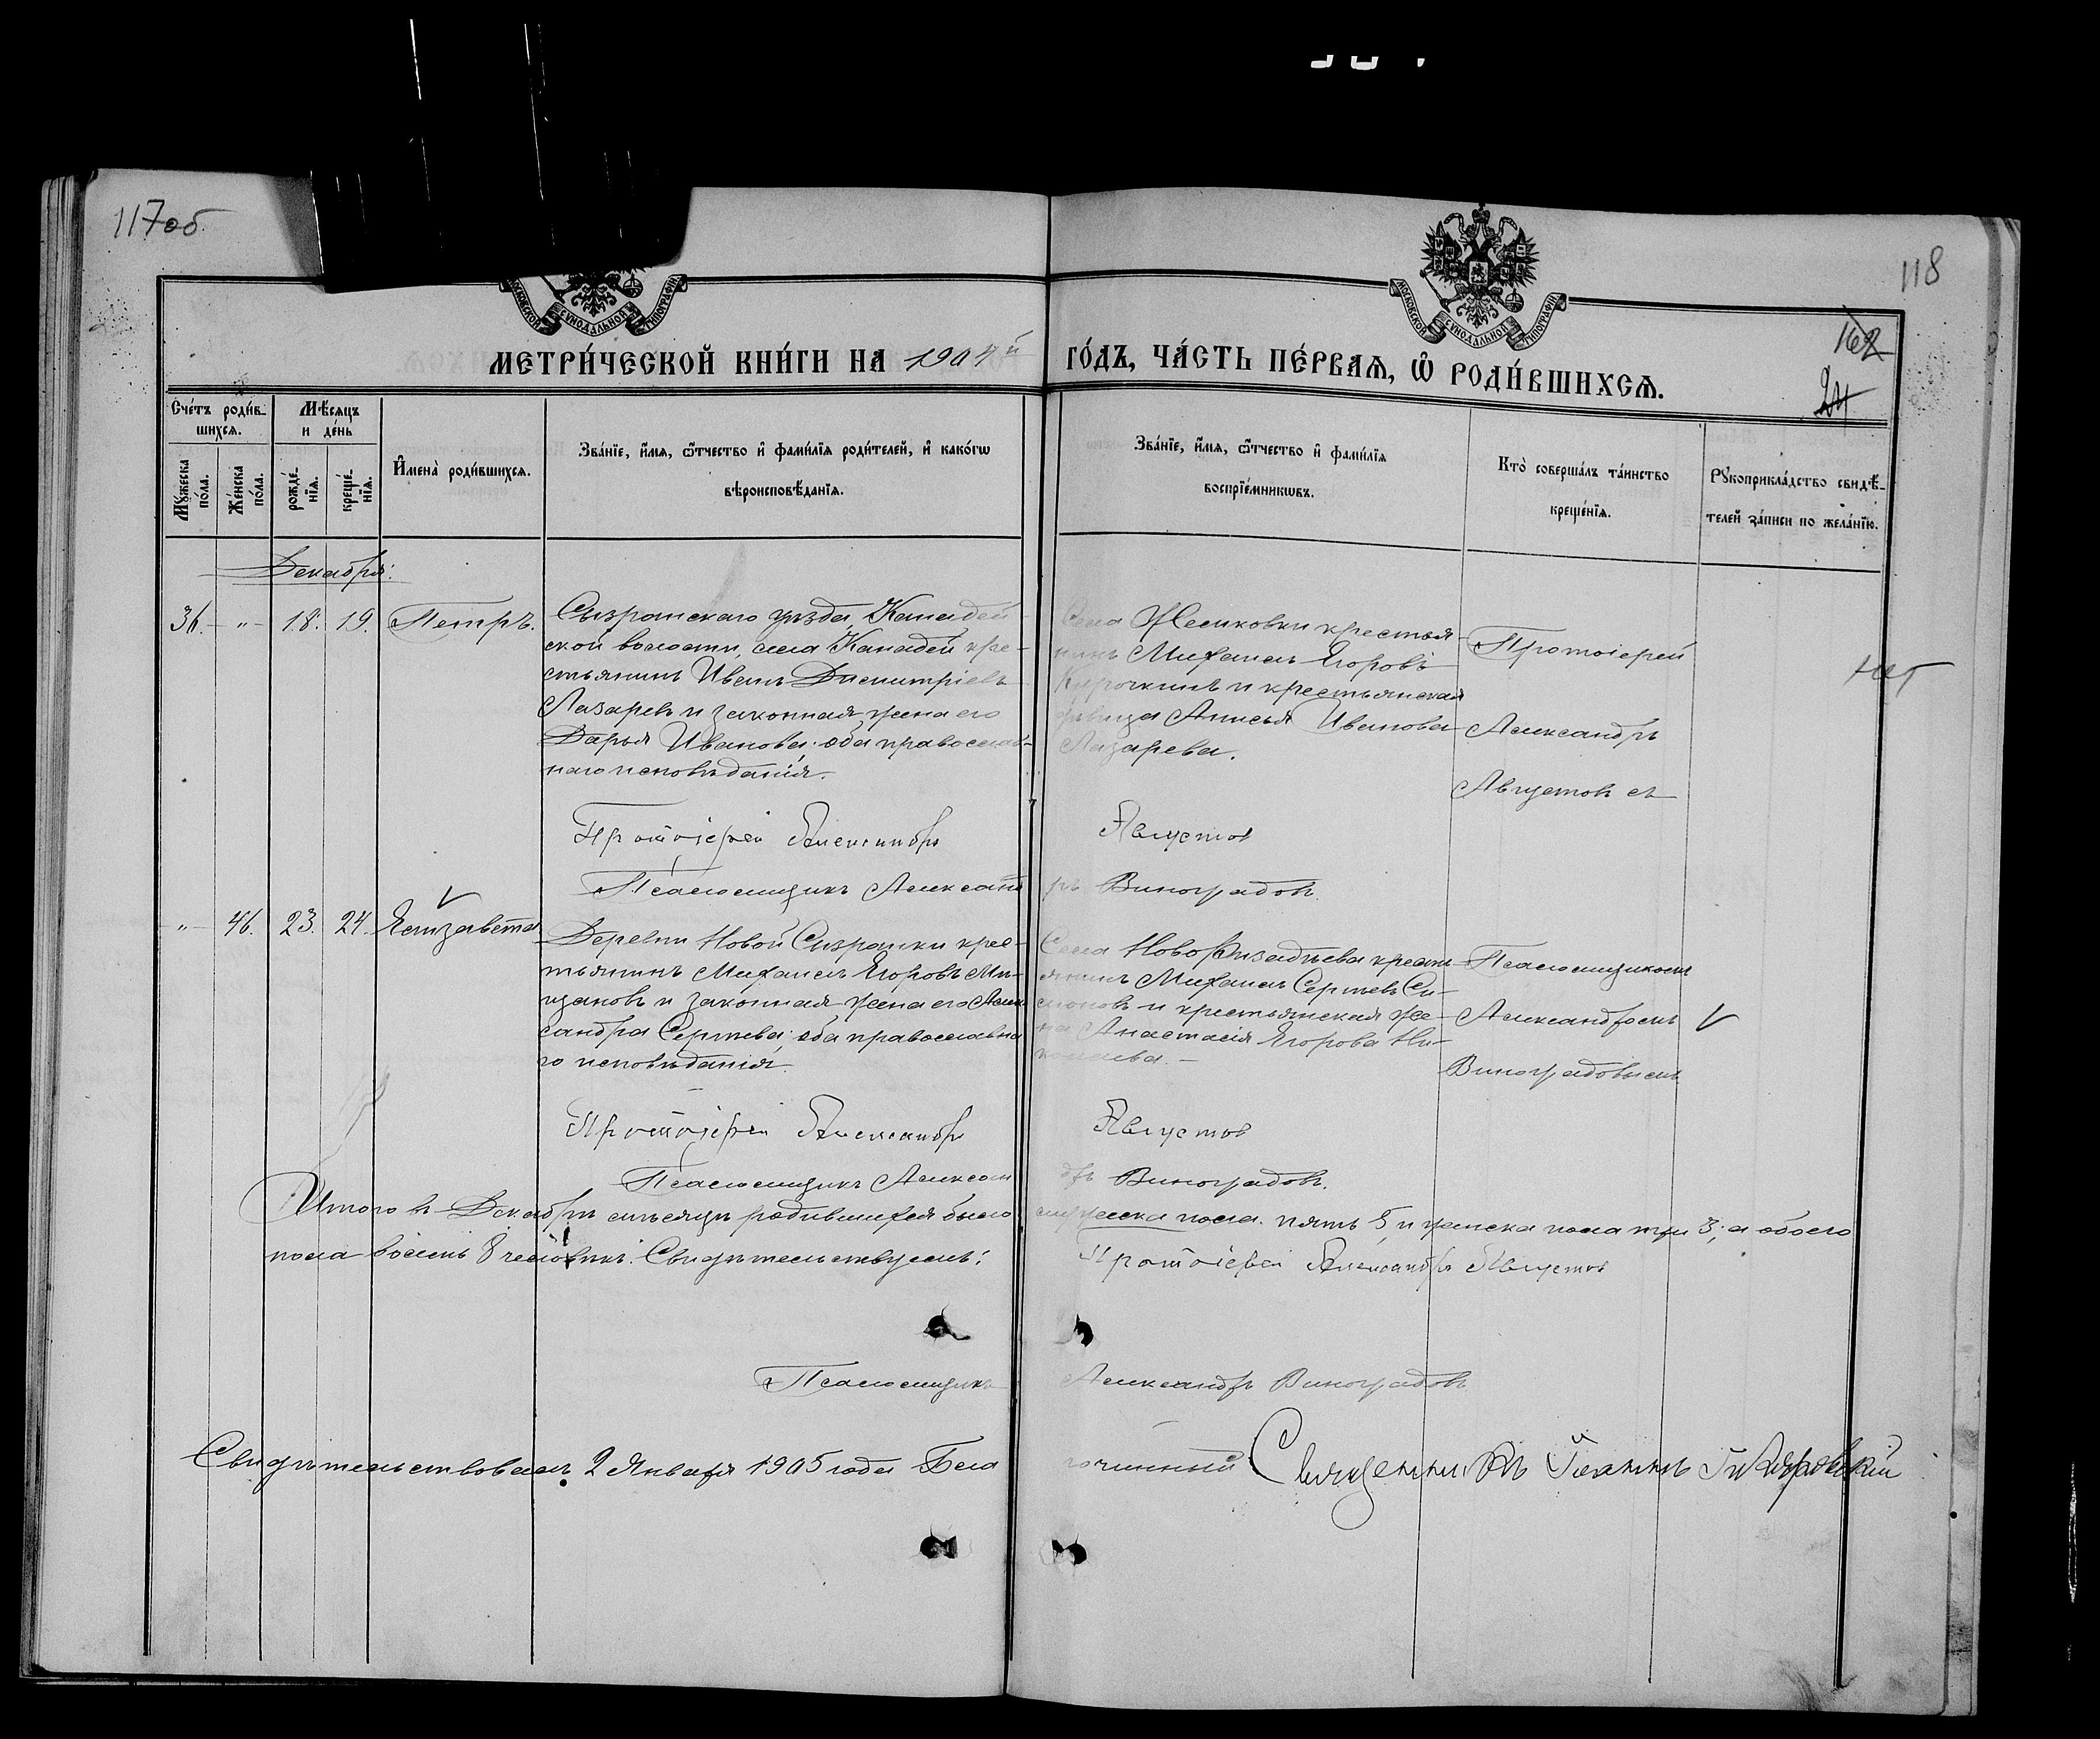 117об.
118
МОСКОВСКОЙ СѴНОДАЛЬНОЙ ТИПОГРАФІИ
МОСКОВСКОЙ СѴНОДАЛЬНОЙ ТИПОГРАФІИ
162
24
МЕТРИ́ЧЕСКОЙ КНИ́ГИ НА 1904й
ГО́ДЪ, ЧА́СТЬ ПЕ́РВАѦ, Ѡ҆ РОДИ́ВШИХСѦ.
Сче́тъ роди́в-
шихсѧ.
Мѣ́сѧцъ
и де́нь
Мꙋ́жеска
по́ла.
Же́нска
по́ла.
рожде́-
нїѧ.
креще́-
нїѧ.
И҆мена̀ роди́вшихсѧ.
Зва́нїе, и҆́мѧ, ѻ҆́тчество и҆ фами́лїѧ роди́телей, и҆ како́гѡ
вѣроисповѣ́данїѧ.
Зва́нїе, и҆́мѧ, ѻ҆́тчество и҆ фами́лїѧ
воспрїе́мникѡвъ.
Кто̀ соверша́лъ та́инство
креще́нїѧ.
Рꙋкоприкла́дство свидѣ́-
телей за́писи по жела́нїю.
Декабря:
36. " 18. 19. Петръ.
Сызранскаго уѣзда, Канадей
ской волости, села Канадей кре-
стьянинъ Иванъ Димитріевъ
Лазаревъ и законная жена его
Дарья Иванова; оба православ-
наго исповѣданія.
Села крестья-
нинъ Михаилъ Егоровъ
и крестьянская
дѣвица Анисья Иванова
Лазарева.
Протоіерей
Александръ
Августовъ съ
нет
Протоіерей Александръ Августов
Псаломщикъ Александръ Виноградовъ.
" 46. 23. 24. Елизавета
Деревни Новой Сызранки крес-
тьянинъ Михаилъ Егоровъ Ми-
щановъ и законная жена его Алек
сандра Сергѣева; оба православна
го исповѣданія.
Села крестья
янинъ Михаилъ Сергѣевъ Си-
моновъ и крестьянская же-
на Анастасія Егорова Ни-
колаева.
Псаломщикомъ
Александромъ
Виноградовымъ
Протоіерей Александръ Августов
Псаломщикъ Александръ Виноградовъ.
Итого въ Декабрѣ мѣсяцѣ родившихся было мужеска пола пять 5, и женска пола три 3; а обоего
пола восемь 8 человѣкъ. Свидѣтельствуемъ: Протоіерей Александръ Августов
Псаломщикъ Александръ Виноградовъ
Свидѣтельствовалъ 2 Января 1905 года Благочинный Священникъ Іоаннъ